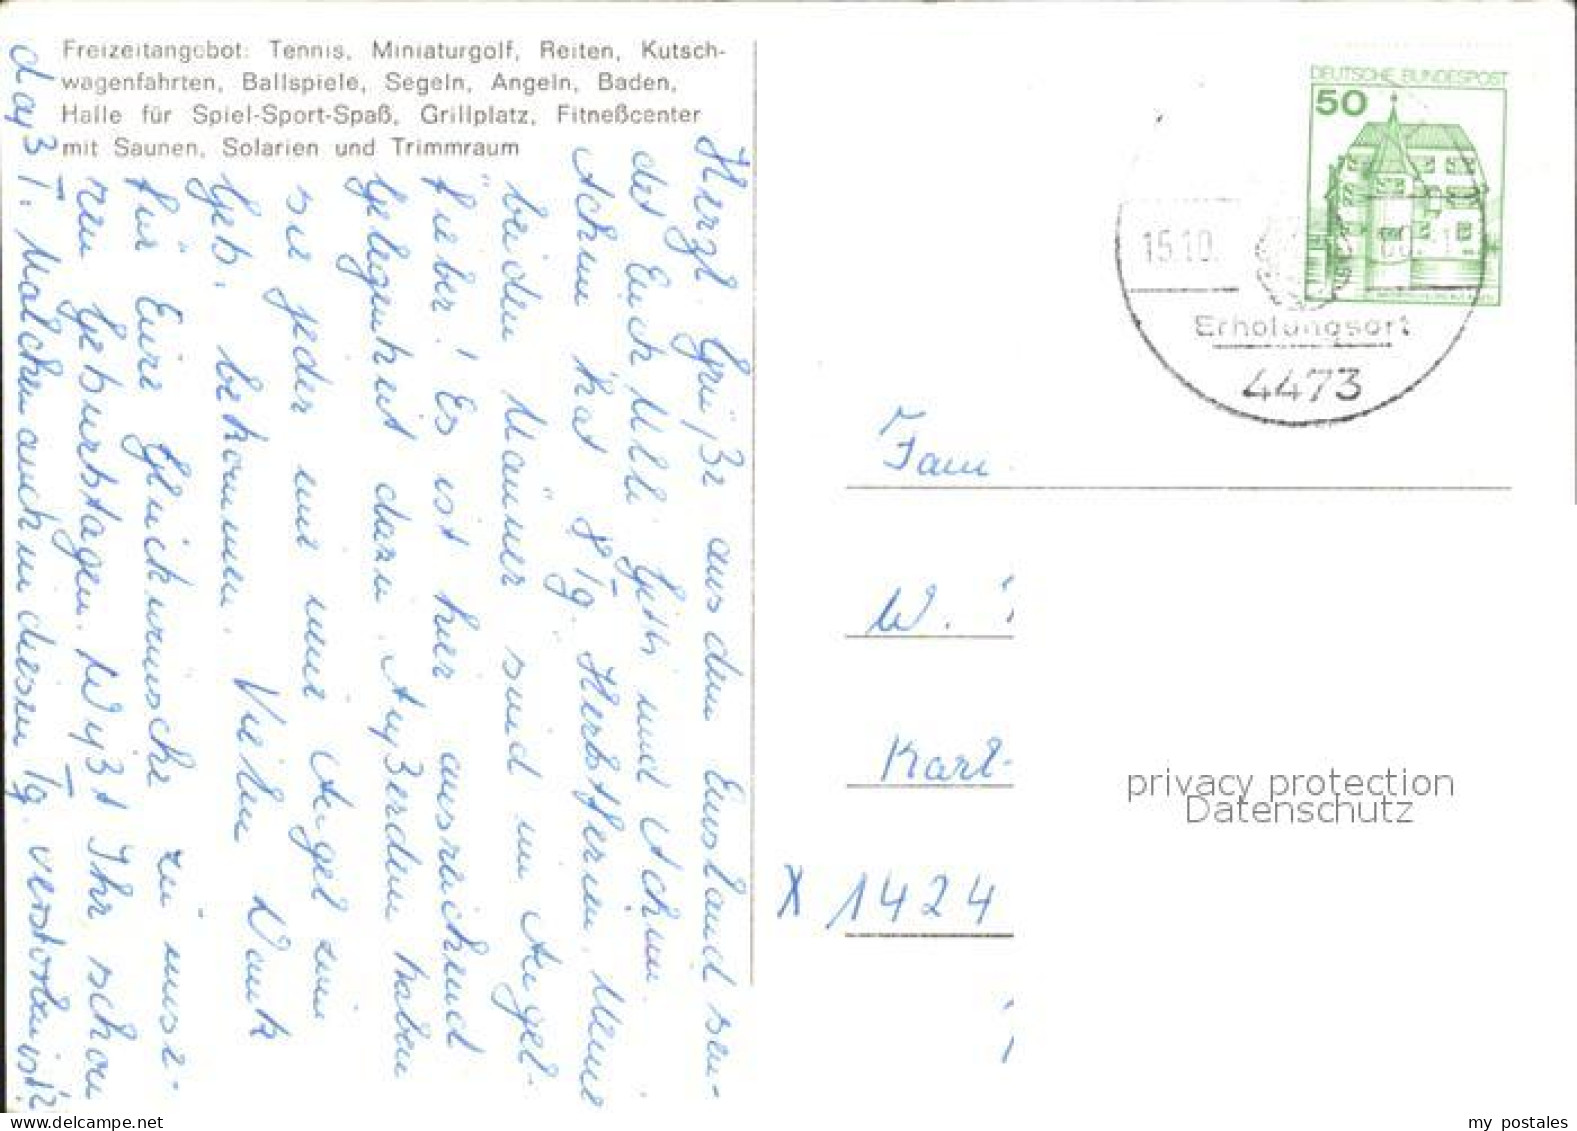 Freizeitangebot: Tennis, Miniaturgolf, Reiten, Kutsch-
wagenfahrten, Ballspiele, Segeln, Angeln, Baden,
Halle für Spiel-Sport-Spaß, Grillplatz, Fitneßcenter
mit Saunen, Solarien und Trimmraum
Herzl. Grüße aus dem Emsland sen-
det Euch Ulli. Gitti und Achim.
Achim hat 8 Tg. Herbstferien. Meine
beiden Männer sind im Angel-
fieber! Es ist hier ausreichend
Gelegenheit dazu. Außerdem haben
sie jeder nur eine Angel zum
Geb. bekommen. Vielen Dank
für Eure Glückwünsche zu unse-
ren Geburtstagen. Wußt Ihr schon
daß T. Malchen auch in diesen Tg. verstorben ist?
DEUTSCHE BUNDESPOST
50
15.10.
Erholungsort
4473
Fam.
W.
Karl-
X 1424
privacy protection
Datenschutz
my postales